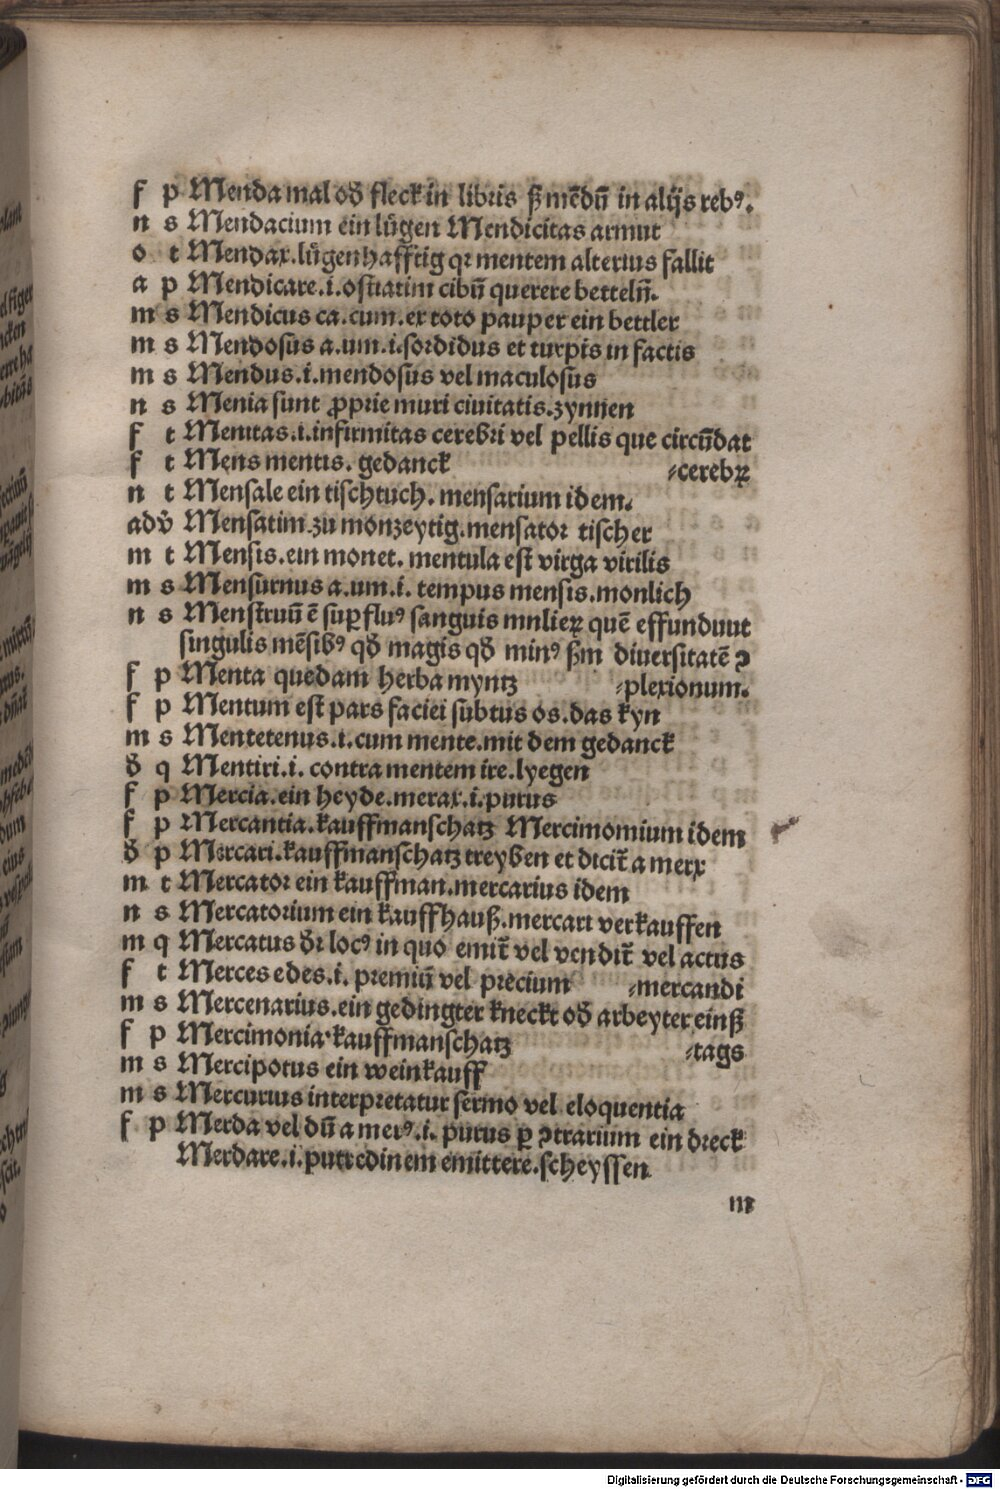 f p Menda mal oď fleck in libris ß mēdū in alijs rebꝰ.
n s Mendacium ein lügen Mendicitas armut
o t Mendax.lügenhafftig qꝛ mentem alterius fallit
a p Mendicare.i.ostiatim cibū querere betteln̄.
m s Mendicus ca.cum.ex toto pauper ein bettler
m s Mendosus a.um.i.sordidus et turpis in factis
m s Mendus.i.mendosus vel maculosus
n s Menia sunt ꝓprie muri ciuitatis.zynnen
f t Menitas.i.infirmitas cerebri vel pellis que circūdat
f t Mens mentis. gedanck ⸗cerebꝝ
n t Mensale ein tischtuch. mensarium idem.
adv̄ Mensatim.zu monzeytig.mensator tischer
m t Mensis.ein monet. mentula est virga virilis
m s Mensurnus a.um.i. tempus mensis.monlich
n s Menstruū ē suꝑfluꝰ sanguis mnlieꝝ quē effundunt
singulis mēsibꝰ qď magis qď minꝰ ßm diuersitatē ꝯ
f p Menta quedam herba myntz ⸗plexionum.
f p Mentum est pars faciei subtus os.das kyn
m s Mentetenus.i.cum mente.mit dem gedanck
ď q Mentiri.i. contra mentem ire.lyegen
f p Mercia.ein heyde.merax.i.purus
f p Mercantia.kauffmanschatz Mercimomium idem
ď p Mercari.kauffmanschatz treyben et dicit̄ a merx
m t Mercator ein kauffman.mercarius idem
n s Mercatorium ein kauffhauß.mercari verkauffen
m q Mercatus ďꝛ locꝰ in quo emit̄ vel vendit̄ vel actus
f t Merces edes.i. premiū vel precium ⸗mercandi
m s Mercenarius.ein gedingter kneckt oď arbeyter einß
f p Mercimonia.kauffmanschatz ⸗tags
m s Mercipotus ein weinkauff
m s Mercurius interpretatur sermo vel eloquentia
f p Merda vel dū a merꝰ.i. purus ꝑ ꝯtrarium ein dreck
Merdare.i.putredinem emittere.scheyssen
m
Digitalisierung gefördert durch die Deutsche Forschungsgemeinschaft - DFG